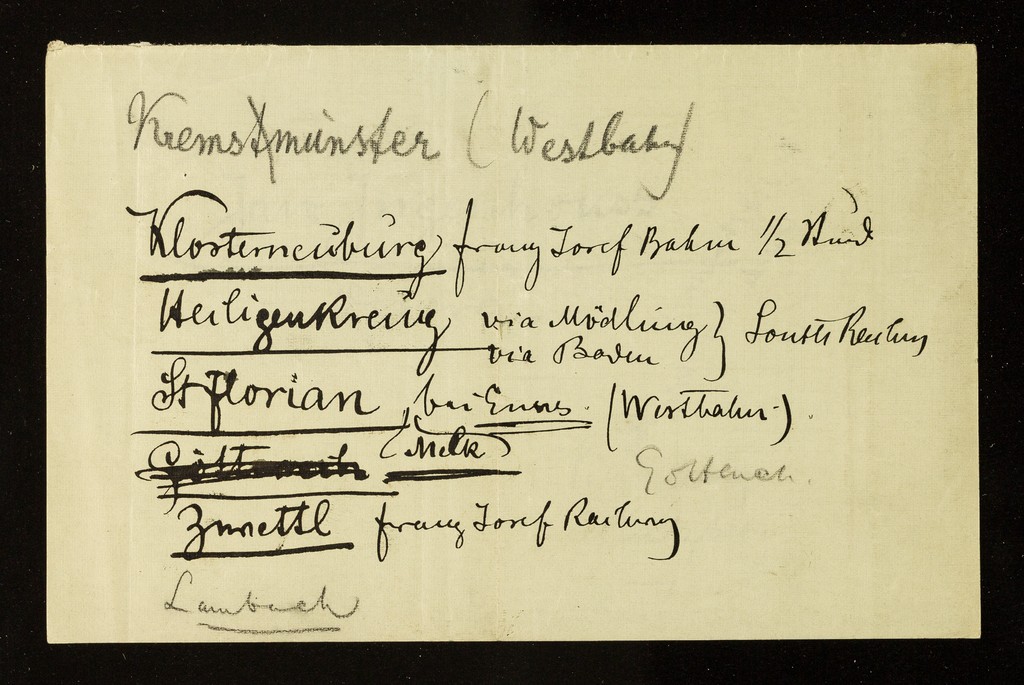 Kremsmünster (Westbahn)
Klosterneuburg Franz Josef Bahn 1/2 Stund
Heiligenkreuz via Mödling } South Railway
via Baden
St Florian, bei Enns. (Westbahn).
Göttweih (Melk)
Göttweih.
Zwettl Franz Josef Railway
Lambach